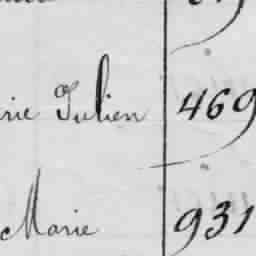 rie Julien 469
Marie 931